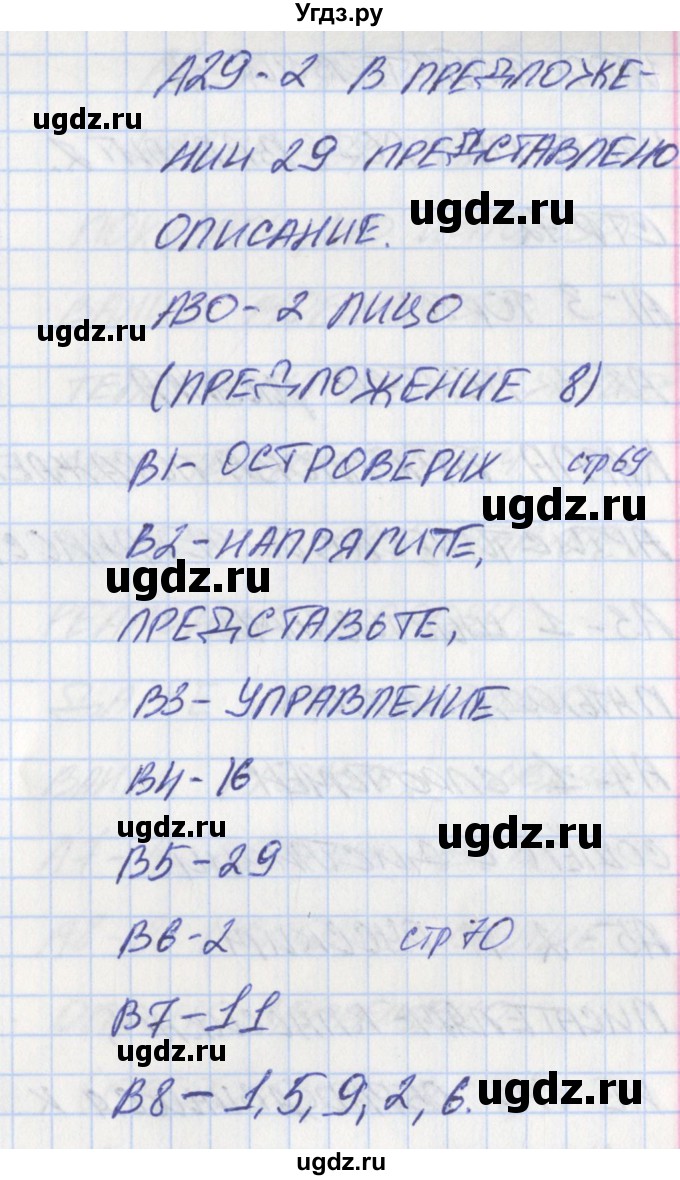 Угдз.ру
А29-2 В ПРЕДЛОЖЕ-
ugdz.ru
НИИ 29 ПРЕДСТАВЛЕНО
ugdz.ru
ОПИСАНИЕ.
А30-2 ЛИЦО
ugdz.ru
(ПРЕДЛОЖЕНИЕ 8)
В1-ОСТРОВЕРИХ стр69
ugdz.ru
В2-НАПРЯГИТЕ,
ugdz.ru
ПРЕДСТАВЬТЕ,
В3-УПРАВЛЕНИЕ
В4-16
ugdz.ru ugdz.ru
В5-29
В6-2 стр70
В7-11
ugdz.ru
В8-1,5,9,2,6.
ugdz.ru
ugdz.ru